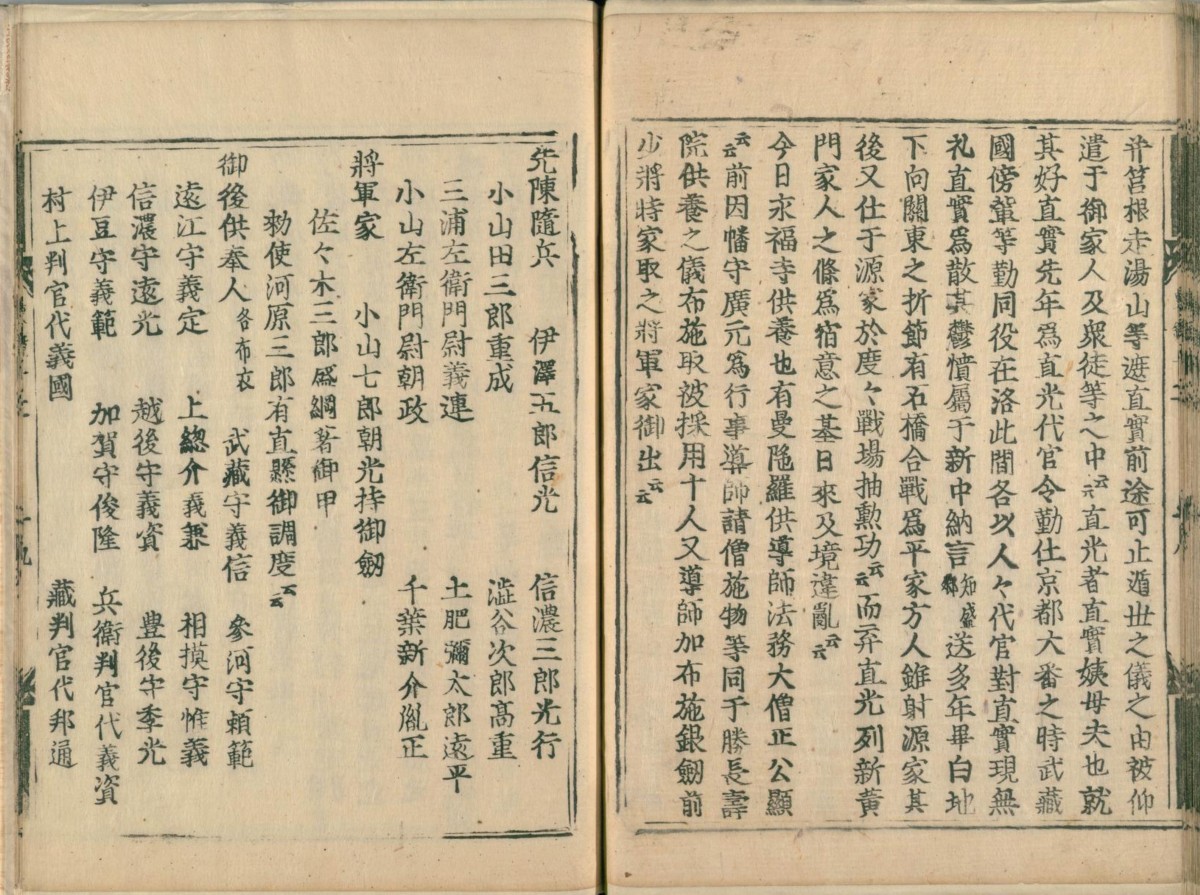 并筥根走湯山等遮直實前途可止遁世之儀之由被仰
遣于御家人及衆徒等之中云云直光者直實姨母夫也就
其好直實先年爲直光代官令勤仕京都大番之時武藏
國傍輩等勤同役在洛此間各以人々代官對直實現無
礼直實爲散其鬱憤屬于新中納言知盛卿送多年畢白地
下向關東之折節有石橋合戰爲平家方人雖射源家其
後又仕于源家於度々戰場抽勲功云云而弃直光列新黄
門家人之條爲宿意之基日來及境違亂云云
今日永福寺供養也有曼陁羅供導師法務大僧正公顯
云云前因幡守廣元爲行事導師請僧施物等同于勝長壽
院供養之儀布施取被採用十人又導師加布施銀劔前
少將時家取之將軍家御出云云
先陳隨兵 伊澤五郎信光 信濃三郎光行
小山田三郎重成 澁谷次郎高重
三浦左衛門尉義連 土肥彌太郎遠平
小山左衛門尉朝政 千葉新介胤正
將軍家 小山七郎朝光持御劔
佐々木三郎盛綱著御甲
勅使河原三郎有直懸御調度云云
御後供奉人各布衣 武藏守義信 參河守頼範
遠江守義定 上總介義兼 相摸守惟義
信濃守遠光 越後守義資 豊後守季光
伊豆守義範 加賀守俊隆 兵衛判官代義資
村上判官代義國 藏判官代邦通